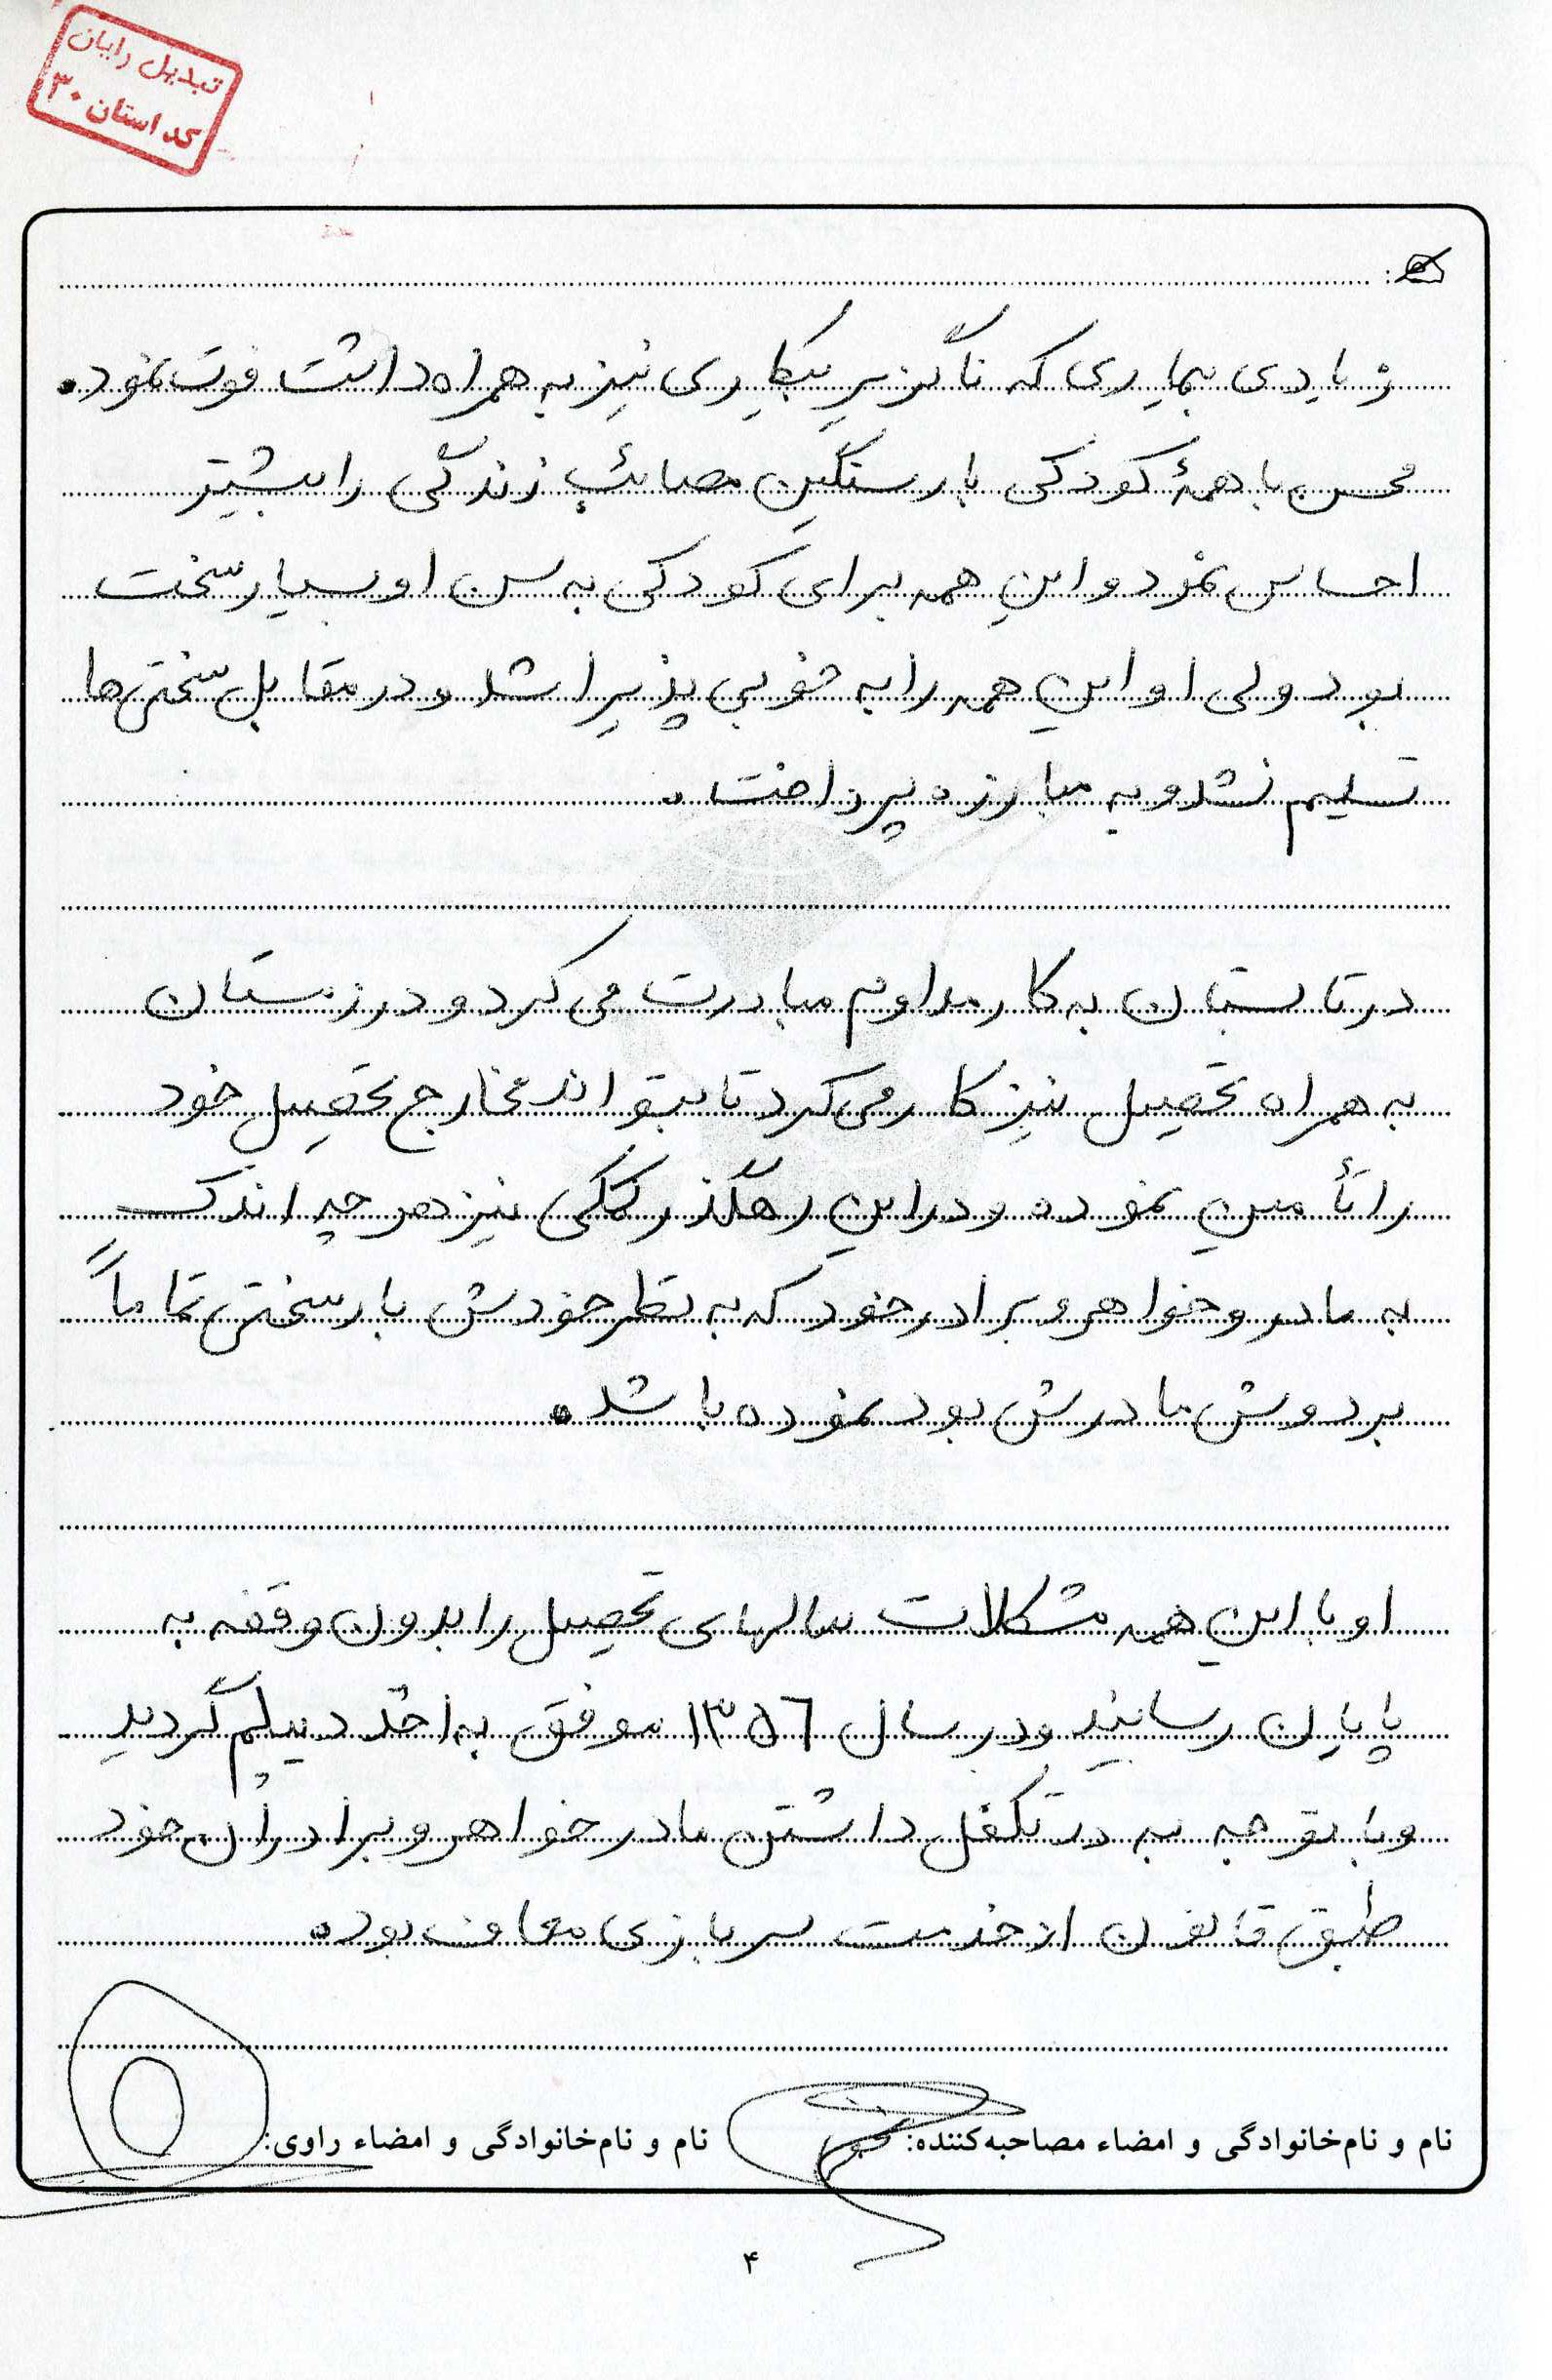 تبدیل رایان
کد استان ۳۰
زیادی بیماری که ناگزیر بیکاری نیز به همراه داشت فوت نمود.
محسن با همهٔ کودکی بار سنگین مصائب زندگی را بیشتر
احساس نمود و این همه برای کودکی به سن او بسیار سخت
بود ولی او این همه را به خوبی پذیرا شد و در مقابل سختی‌ها
تسلیم نشد و به مبارزه پرداخت.
در تابستان به کار مداوم مبادرت می‌کرد و در زمستان
به همراه تحصیل نیز کار می‌کرد تا بتواند مخارج تحصیل خود
را تأمین نموده و در این رهگذر کمکی نیز هر چه اندک
به مادر و خواهر و برادر خود که به نظر خودش بار سختی تماماً
بر دوش مادرش بود نموده باشد.
او با این همه مشکلات سالهای تحصیل را بدون وقفه به
پایان رسانید و در سال ۱۳۵۶ موفق به اخذ دیپلم گردید
و با توجه به در تکفل داشتن مادر خواهر و برادران خود
طبق قانون از خدمت سربازی معاف بود.
نام و نام‌خانوادگی و امضاء مصاحبه‌کننده: نام و نام‌خانوادگی و امضاء راوی:
۴